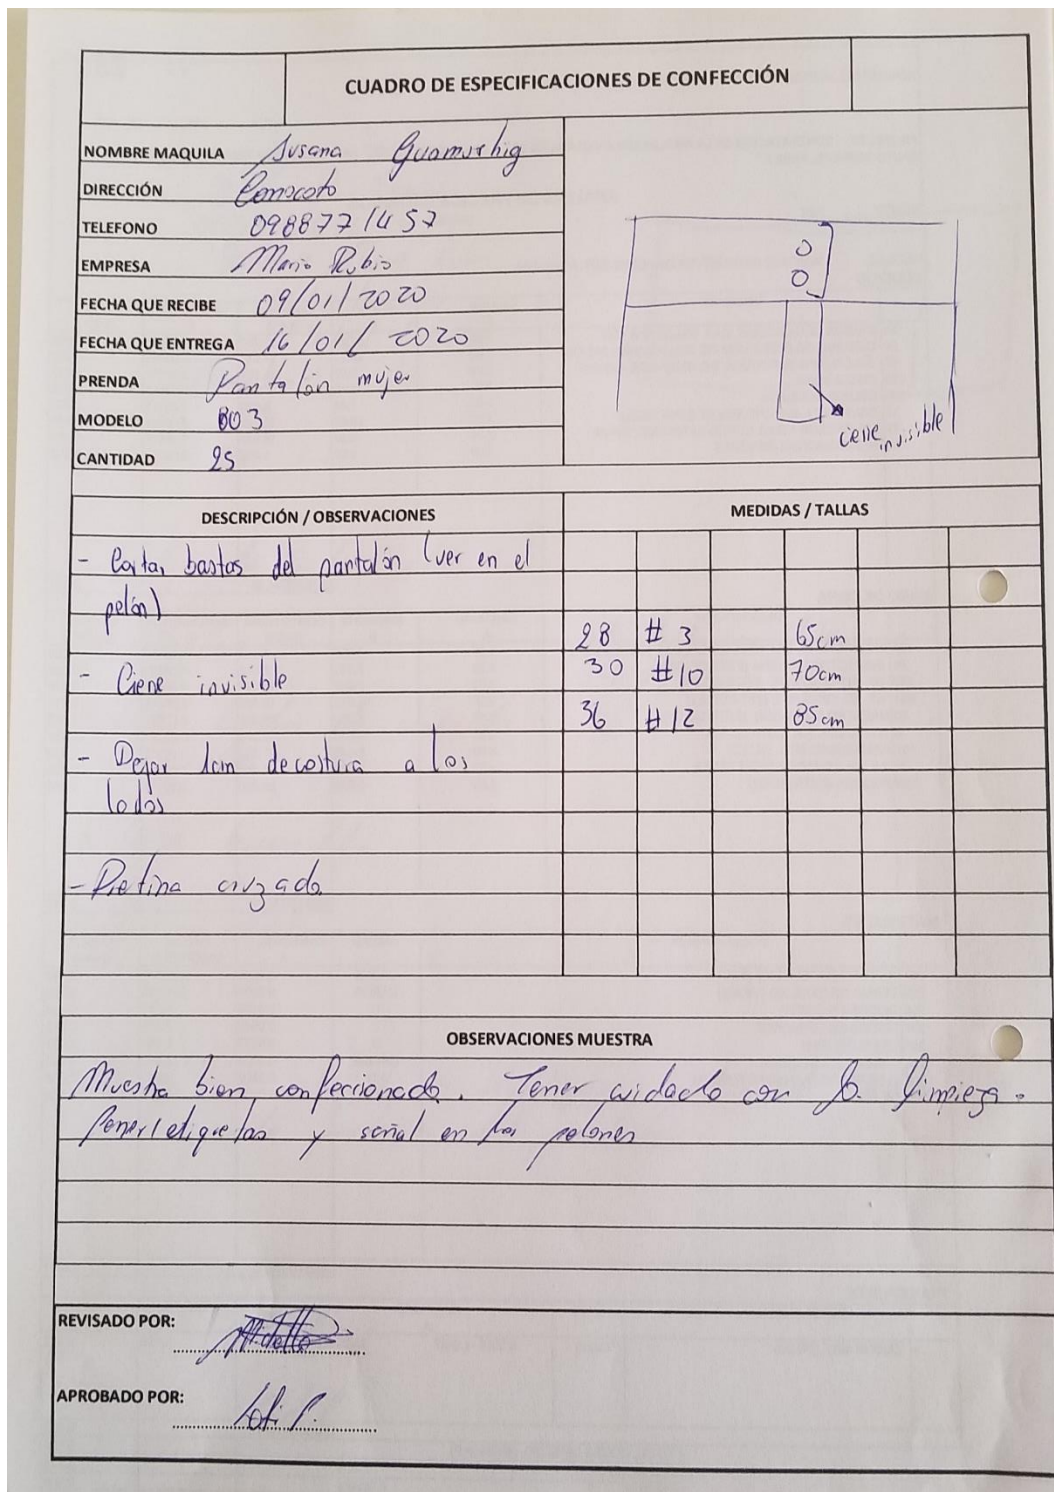 CUADRO DE ESPECIFICACIONES DE CONFECCIÓN
NOMBRE MAQUILA Susana
DIRECCIÓN Conocoto
TELEFONO 0988771457
EMPRESA Mario Rubio
FECHA QUE RECIBE 09/01/2020
FECHA QUE ENTREGA 16/01/2020
PRENDA Pantalón mujer
MODELO 803
CANTIDAD 25
cierre invisible
DESCRIPCIÓN / OBSERVACIONES
- Cortar bastas del pantalón (ver en el
pelón)
- Cierre invisible
- Dejar 1cm de costura a los
lados
- Pretina cruzada
MEDIDAS / TALLAS
28 # 3 65cm
30 #10 70cm
36 #12 85cm
OBSERVACIONES MUESTRA
Muestra bien confeccionada. Tener cuidado con la limpieza.
Poner etiquetas y señal en los pelones
REVISADO POR:
APROBADO POR: